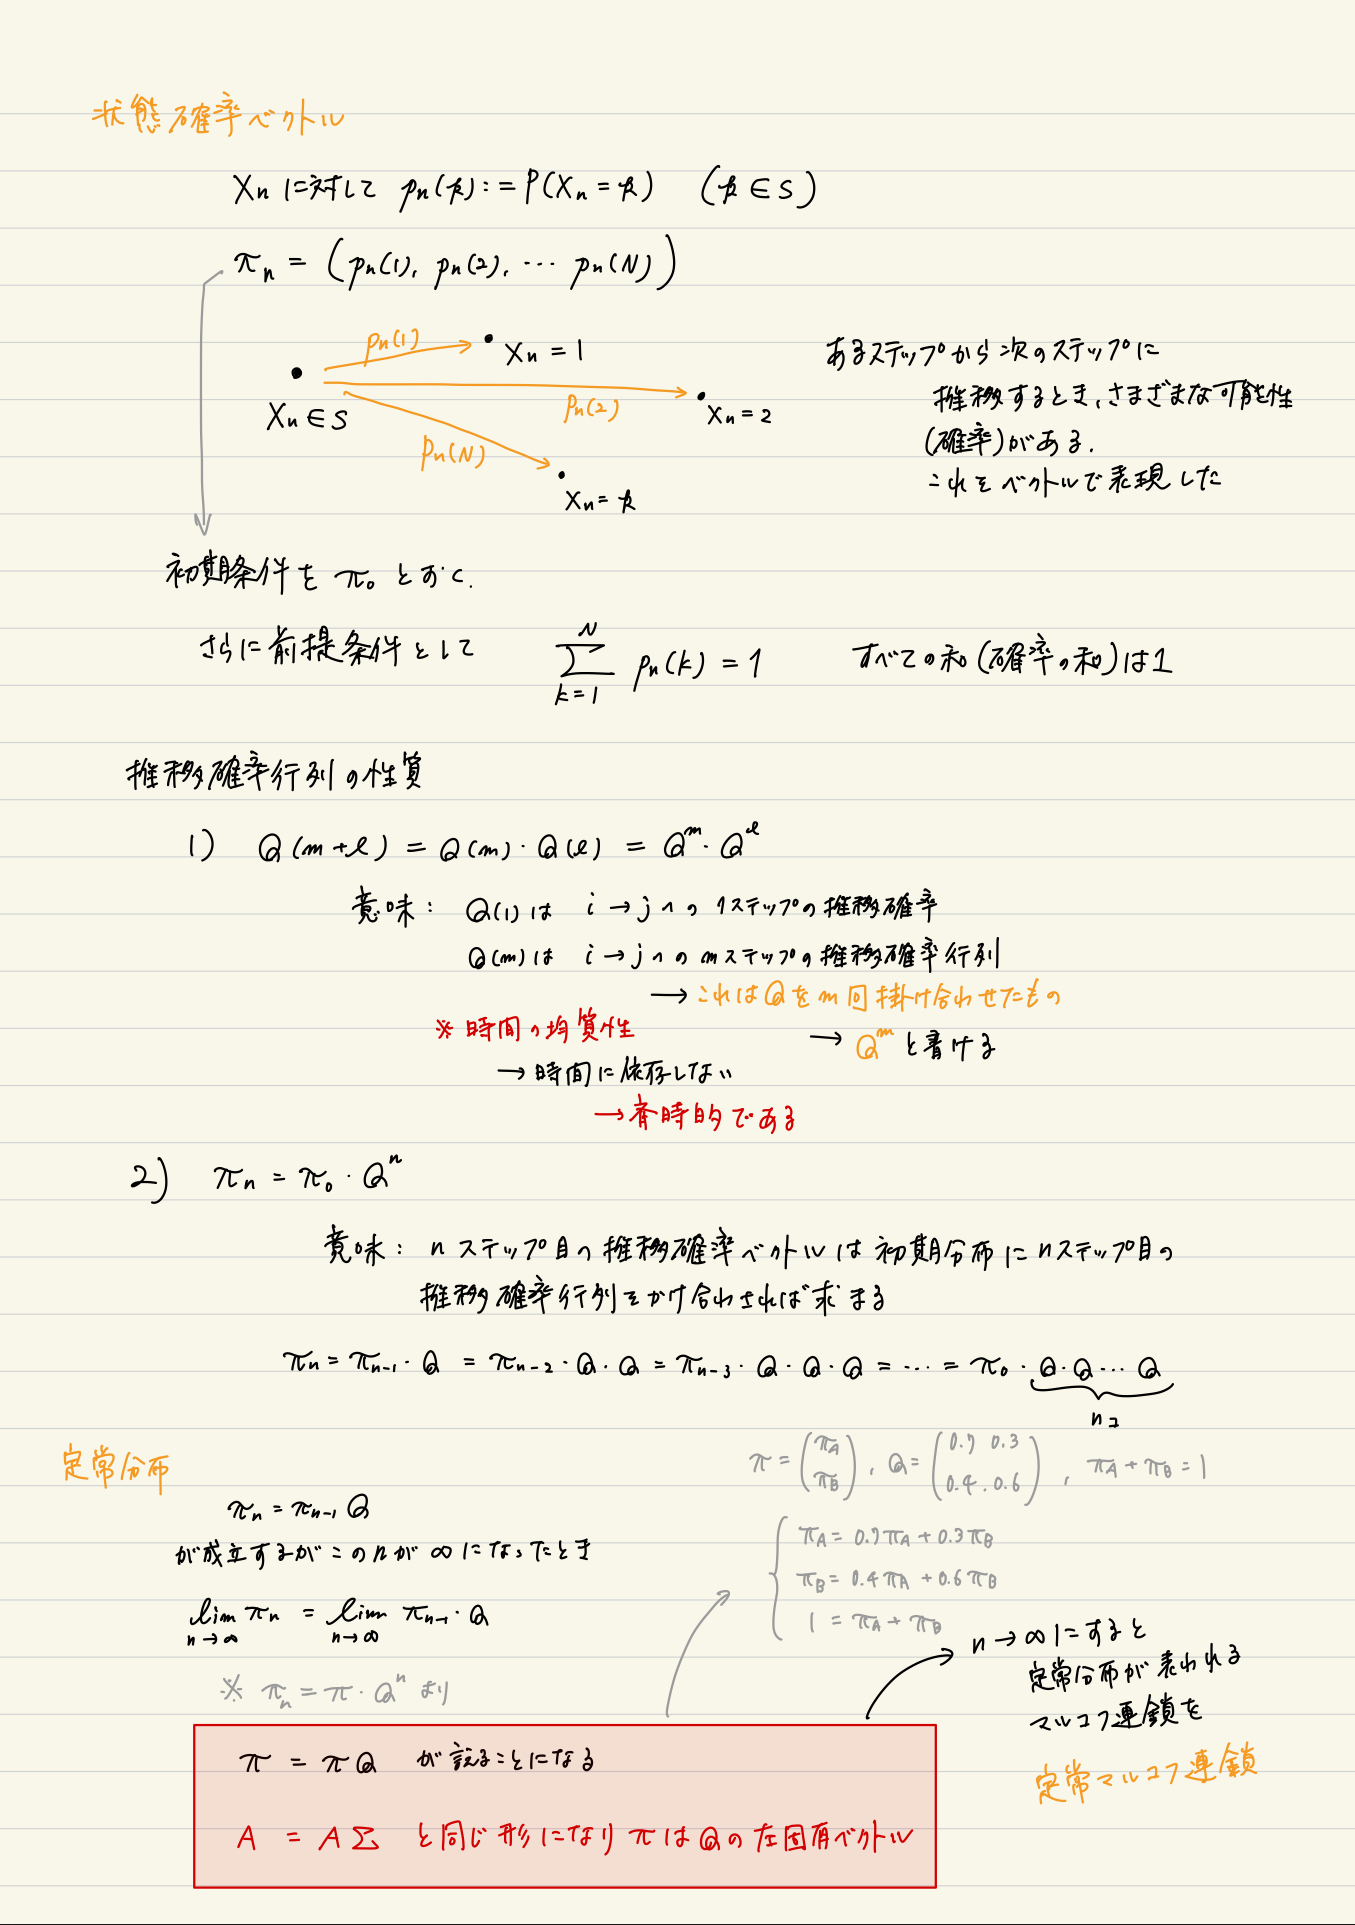 状態確率ベクトル
Xn に対して pn(k) := P(Xn = k) (k ∈ S)
πn = (pn(1), pn(2), … pn(N))
pn(1)
Xn = 1
Xn ∈ S
pn(2)
Xn = 2
pn(N)
Xn = k
あるステップから次のステップに
推移するとき、さまざまな可能性
(確率)がある.
これをベクトルで表現した
初期条件を π0 とおく.
さらに前提条件として
N
∑ pn(k) = 1
k=1
すべての和(確率の和)は1
推移確率行列の性質
1) Q(m+ℓ) = Q(m)・Q(ℓ) = Q^m・Q^ℓ
意味: Q(1)は i→jへの1ステップの推移確率
Q(m)は i→jへのmステップの推移確率行列
→ これはQをm回掛け合わせたもの
※ 時間の均質性
→ Q^m と書ける
→ 時間に依存しない
→ 斉時的である
2) πn = π0・Q^n
意味: nステップ目の推移確率ベクトルは初期分布にnステップ目の
推移確率行列をかけ合わされば求まる
πn = πn-1・Q = πn-2・Q・Q = πn-3・Q・Q・Q = … = π0・Q・Q…Q
nコ
定常分布
πn = πn-1 Q
が成立するがこのnが∞になったとき
lim πn = lim πn-1・Q
n→∞ n→∞
※ πn = π・Q^n より
π = (πA πB), Q = (0.7 0.3
0.4 . 0.6), πA + πB = 1
πA = 0.7πA + 0.3πB
πB = 0.4πA + 0.6πB
1 = πA + πB
n→∞にすると
定常分布が表われる
マルコフ連鎖を
定常マルコフ連鎖
π = πQ が言えることになる
A = AΣ と同じ形になり πはQの左固有ベクトル